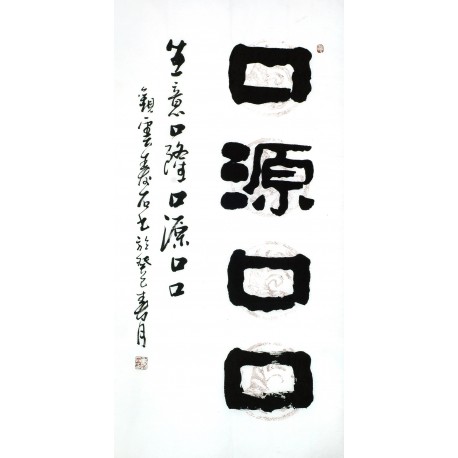 口源口口
生意口隆口源口口
雲石书於癸巳春月